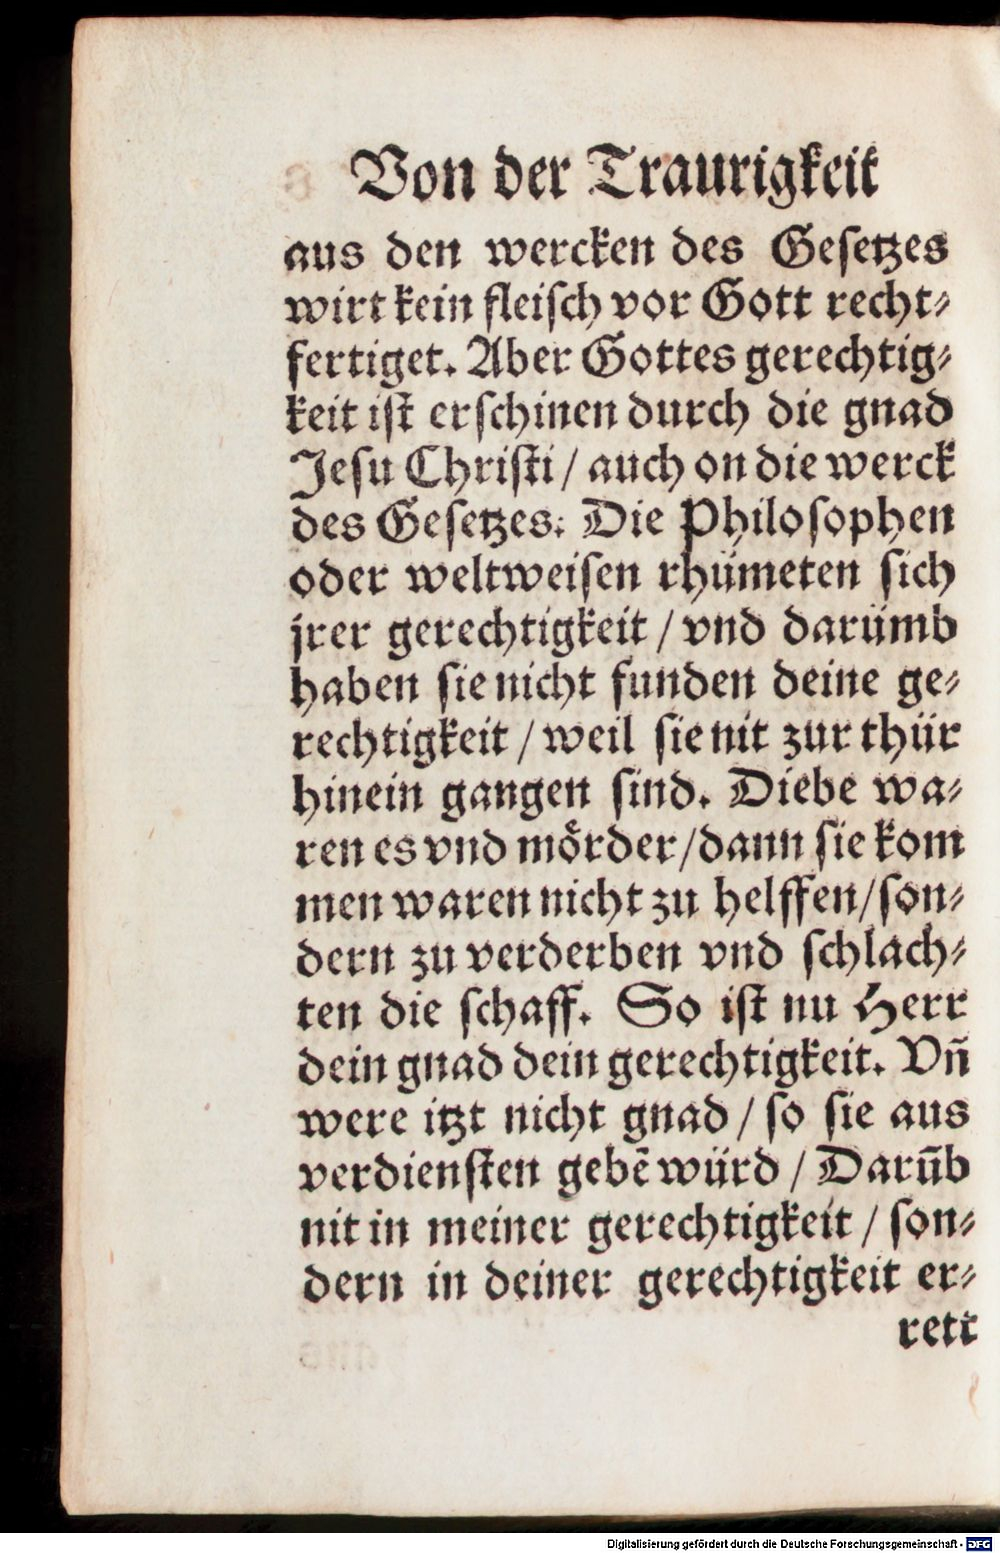 Von der Traurigkeit
aus den wercken des Gesetzes
wirt kein fleisch vor Gott recht⸗
fertiget. Aber Gottes gerechtig⸗
keit ist erschinen durch die gnad
Jesu Christi / auch on die werck
des Gesetzes. Die Philosophen
oder weltweisen rhümeten sich
jrer gerechtigkeit / vnd darümb
haben sie nicht funden deine ge⸗
rechtigkeit / weil sie nit zur thür
hinein gangen sind. Diebe wa⸗
ren es vnd mörder/dann sie kom
men waren nicht zu helffen/son⸗
dern zu verderben vnd schlach⸗
ten die schaff. So ist nu Herr
dein gnad dein gerechtigkeit. Vñ
were itzt nicht gnad / so sie aus
verdiensten gebẽ würd / Darũb
nit in meiner gerechtigkeit / son⸗
dern in deiner gerechtigkeit er⸗
rett
Digitalisierung gefördert durch die Deutsche Forschungsgemeinschaft - DFG